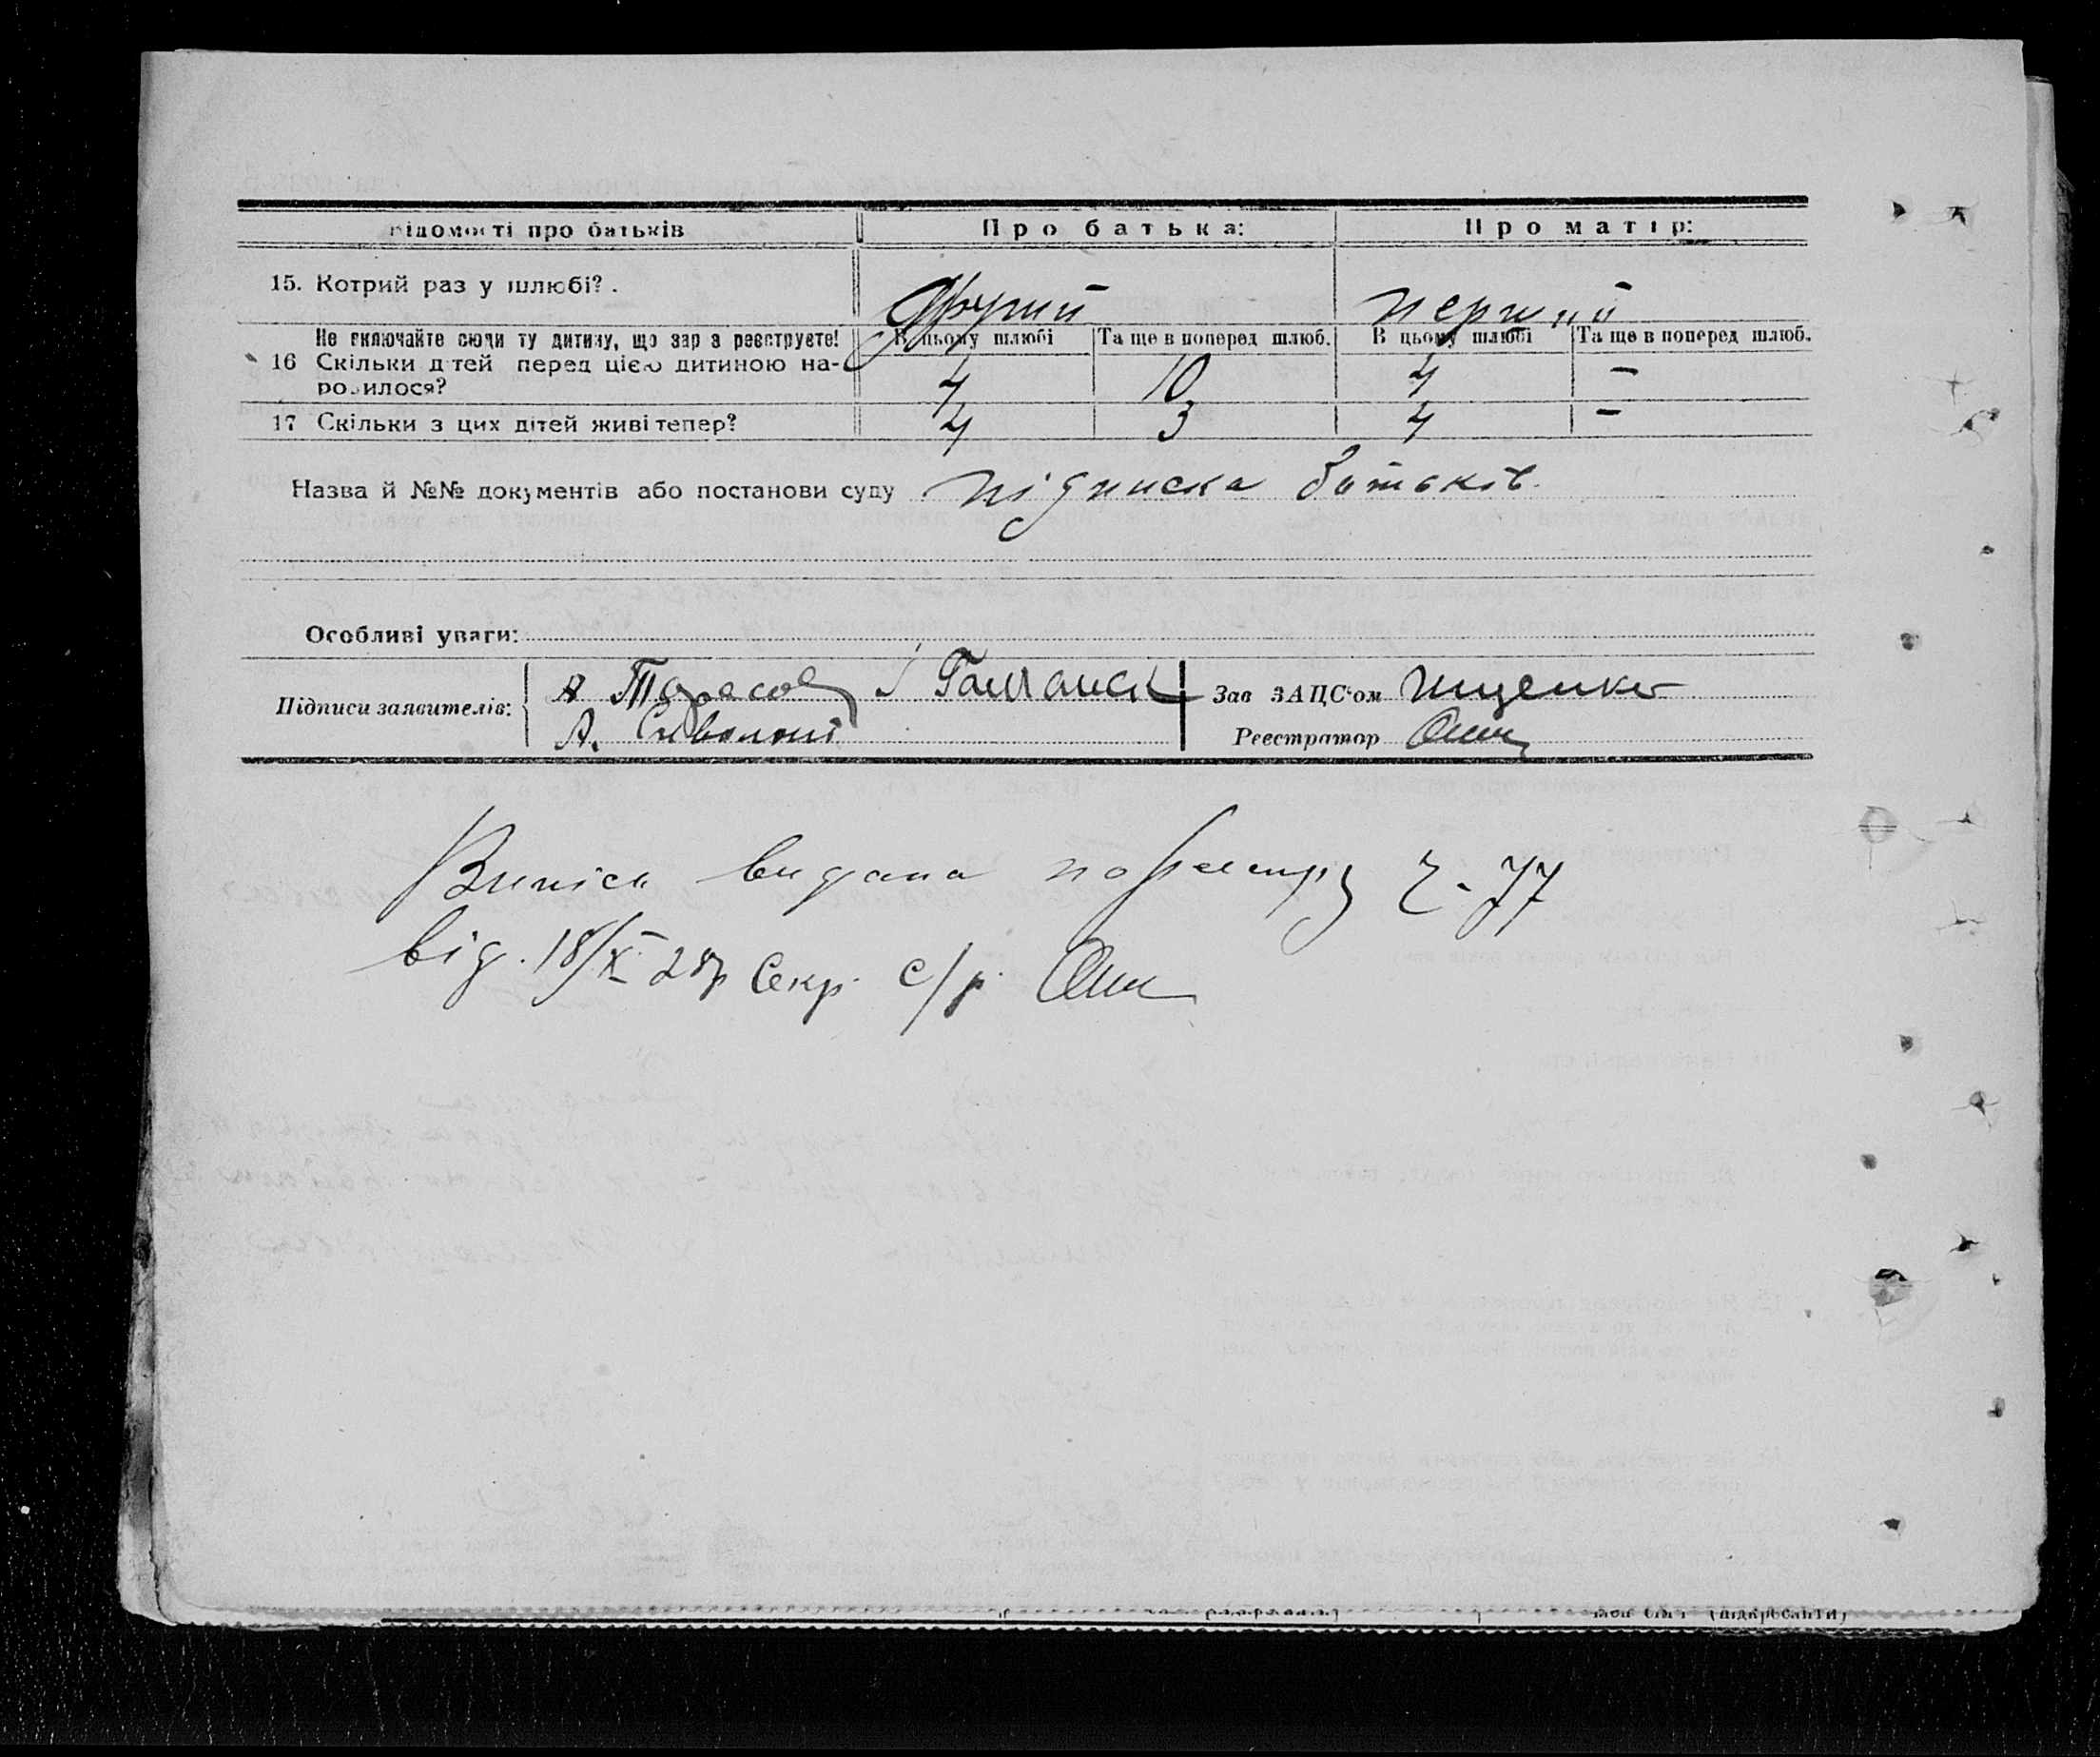 відомості про батьків Про батька: Про матір:
15. Котрий раз у шлюбі?. Другий первий
Не включайте сюди ту дитину, що зараз реєструєте! В цьому шлюбі Та ще в поперед шлюб. В цьому шлюбі Та ще в поперед шлюб.
16 Скільки дітей перед цією дитиною на-
родилося? 4 10 4 –
17 Скільки з цих дітей живі тепер? 4 3 4 –
Назва й №№ документів або постанови суду підписка батьків
Особливі уваги:
Підписи заявителів: А Тарасов Зав ЗАЦС'ом Ищенко
А. Реєстратор
Випись видана по реєстру Ч-77
від. 18/X 28р Секр. с/р.
(підкреслити)